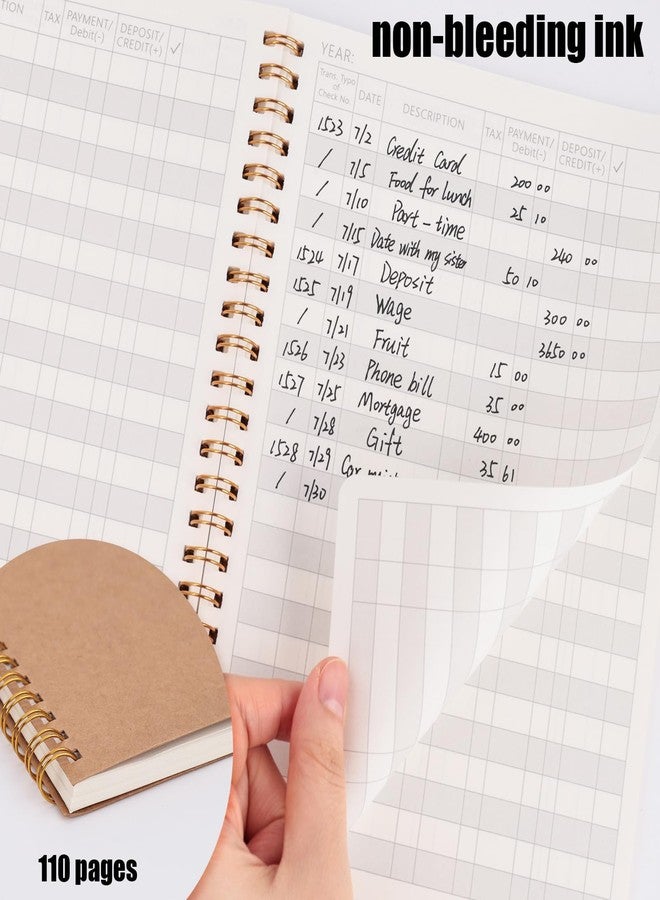 non-bleeding ink
TION TAX PAYMENT/ Debit(-) DEPOSIT/ CREDIT(+) ✓
YEAR:
Trans. Typo of Check No. DATE DESCRIPTION TAX PAYMENT/ Debit(-) DEPOSIT/ CREDIT(+) ✓
1523 7/2 Credit Card 200 00
/ 7/5 Food for lunch 25 10
/ 7/10 Part-time 240 00
/ 7/15 Date with my sister 50 10
1524 7/17 Deposit 300 00
1525 7/19 Wage 3650 00
/ 7/21 Fruit 15 00
1526 7/23 Phone bill 35 00
1527 7/25 Mortgage 400 00
/ 7/28 Gift 35 61
1528 7/29 Car
/ 7/30
110 pages